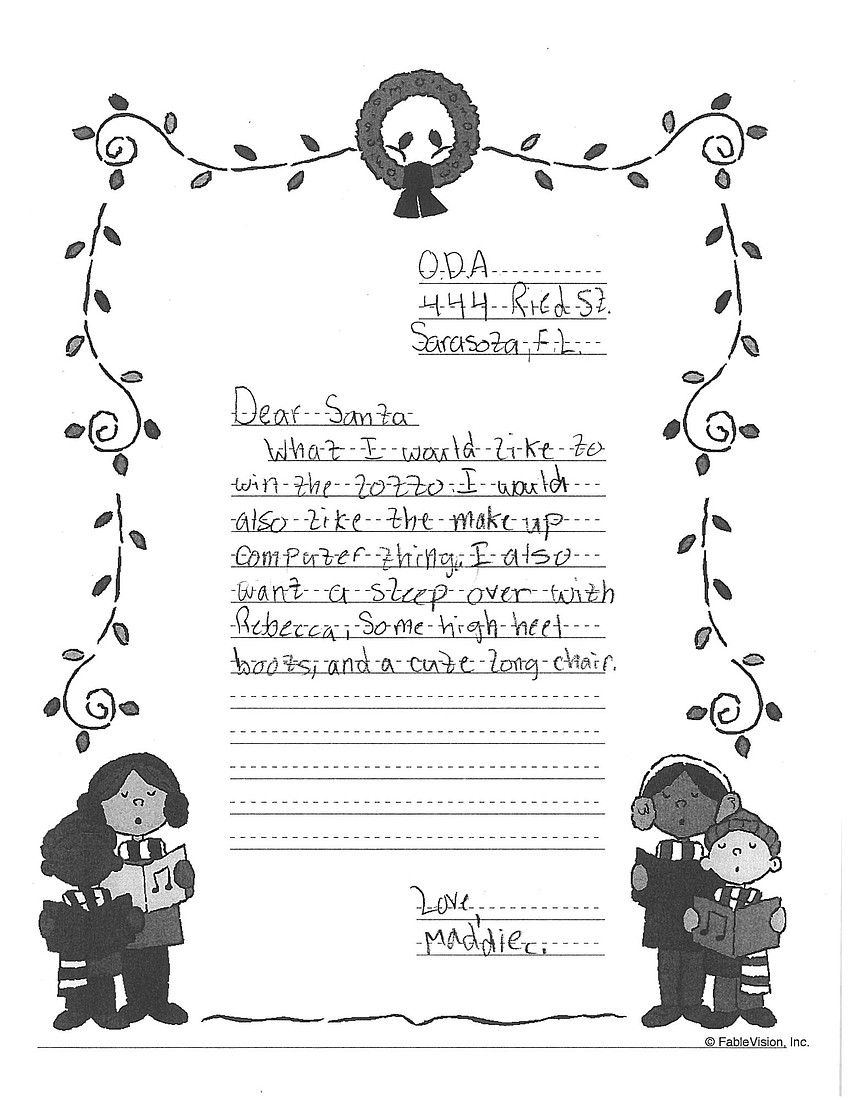 O.D.A
444 Ried St.
Sarasota, F.L.
Dear Santa
What I would like to
win the lotto. I would
also like the make up
computer thing. I also
want a sleep over with
Rebecca, Some high heel
boots, and a cute long chair.
Love,
Maddie C.
© FableVision, Inc.